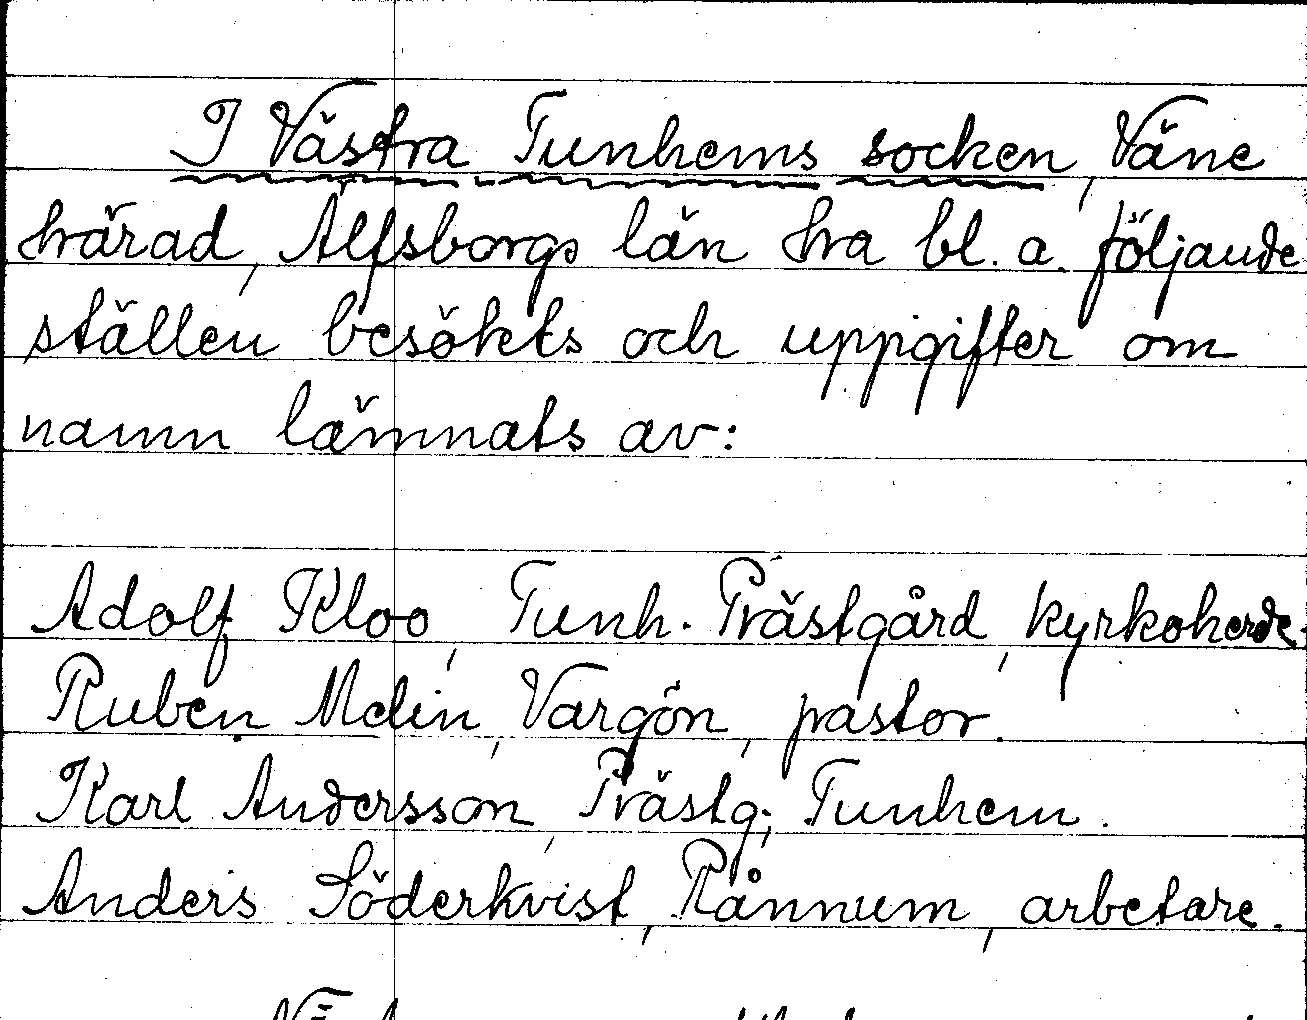 I Västra Tunhems socken, Väne
härad, Älfsborgs län ha bl. a. följande
ställen besökts och uppgifter om
namn lämnats av:
Adolf Kloo, Tunh. Prästgård, kyrkoherde.
Ruben Melin, Vargön, pastor.
Karl Andersson, Prästg., Tunhem.
Anders Söderkvist, Rånnum, arbetare.